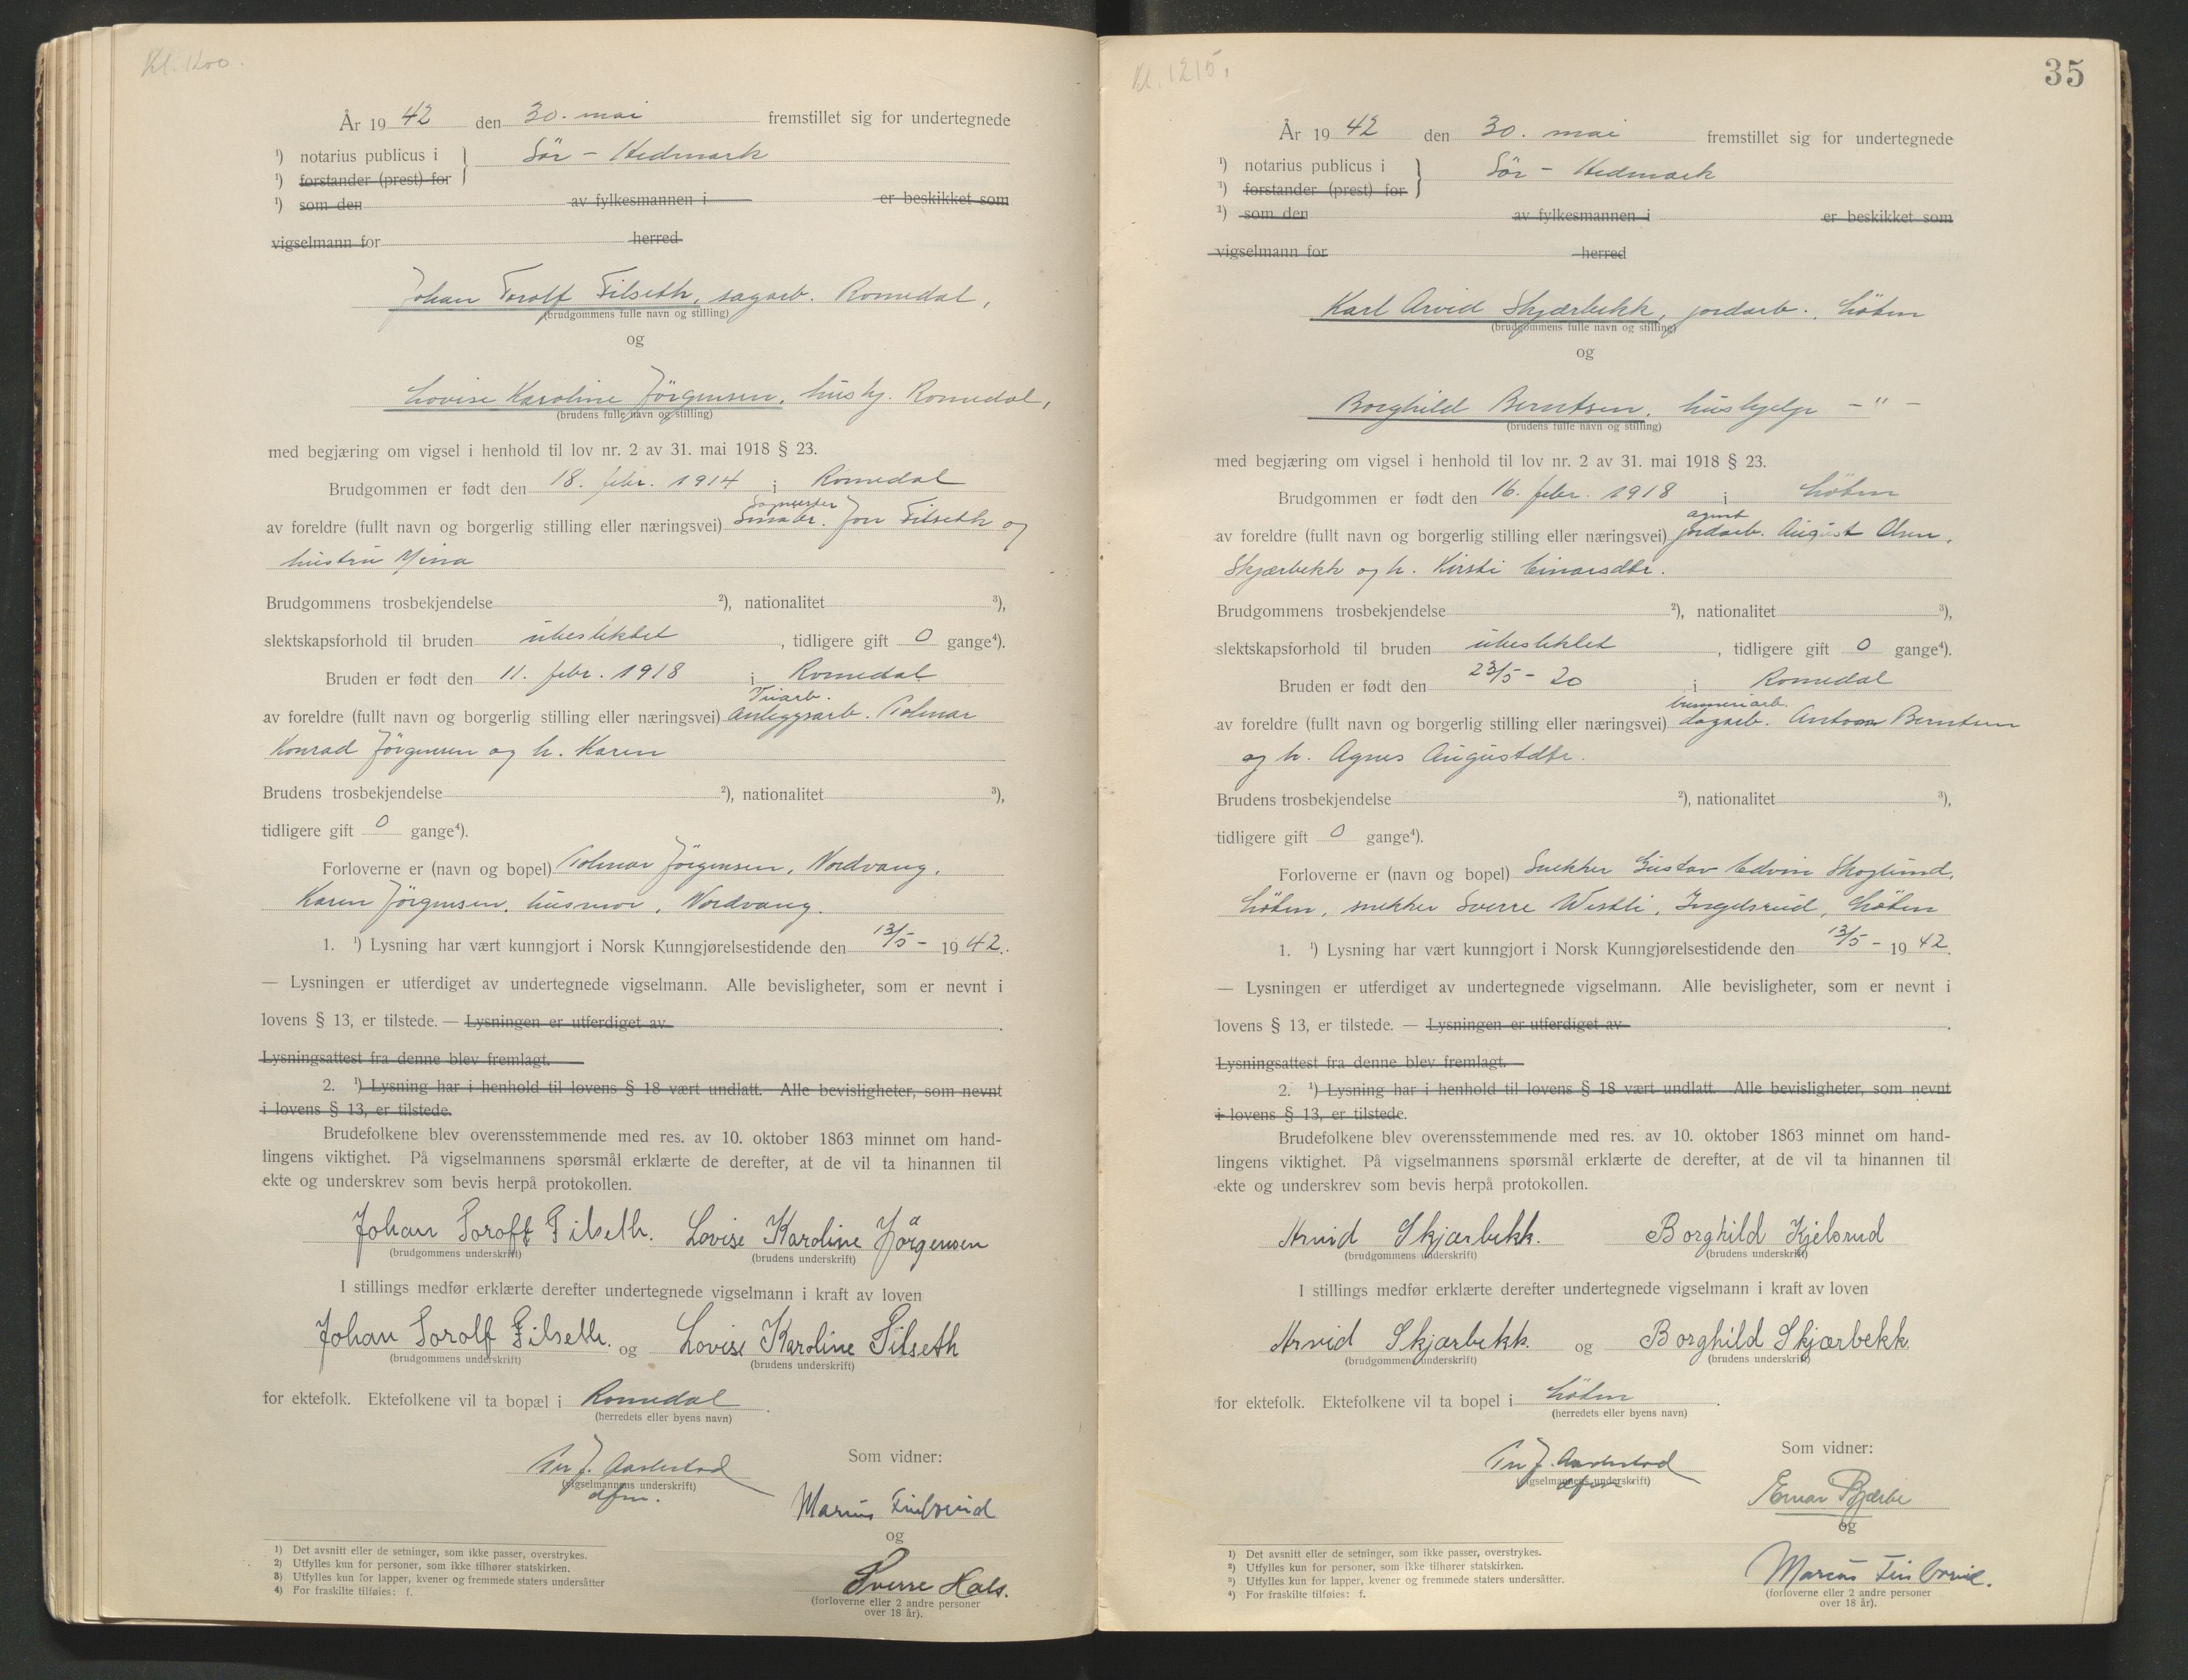 Kl. 1200.
År 1942 den 30. mai fremstillet sig for undertegnede
¹) notarius publicus i } Sör - Hedmark
¹) forstander (prest) for
¹) som den av fylkesmannen i er beskikket som
vigselmann for herred
Johan Torolf Tilseth, sagarb. Romedal,
(brudgommens fulle navn og stilling)
og
Lovise Karoline Jörgensen, hushj. Romedal,
(brudens fulle navn og stilling)
med begjæring om vigsel i henhold til lov nr. 2 av 31. mai 1918 § 23.
Brudgommen er født den 18. febr. 1914 i Romedal
Sagmester
av foreldre (fullt navn og borgerlig stilling eller næringsvei) Småbr. Jon Tilseth og
hustru Mina
Brudgommens trosbekjendelse ²), nationalitet ³),
slektskapsforhold til bruden ubeslektet, tidligere gift 0 gange⁴).
Bruden er født den 11. febr. 1918 i Romedal
av foreldre (fullt navn og borgerlig stilling eller næringsvei) Anleggsarb. Tolmar
Konrad Jörgensen og h. Karen
Brudens trosbekjendelse ²), nationalitet ³),
tidligere gift 0 gange⁴).
Forloverne er (navn og bopel) Tolmar Jörgensen, Nordvang,
Karen Jörgensen, husmor, Nordvang.
1. ¹) Lysning har vært kunngjort i Norsk Kunngjørelsestidende den 13/5 - 1942.
— Lysningen er utferdiget av undertegnede vigselmann. Alle bevisligheter, som er nevnt i
lovens § 13, er tilstede. — Lysningen er utferdiget av
Lysningsattest fra denne blev fremlagt.
2. ¹) Lysning har i henhold til lovens § 18 vært undlatt. Alle bevisligheter, som nevnt
i lovens § 13, er tilstede.
Brudefolkene blev overensstemmende med res. av 10. oktober 1863 minnet om hand-
lingens viktighet. På vigselmannens spørsmål erklærte de derefter, at de vil ta hinannen til
ekte og underskrev som bevis herpå protokollen.
Johan Toroff Tilseth. Lovise Karoline Jörgensen
(brudgommens underskrift) (brudens underskrift)
I stillings medfør erklærte derefter undertegnede vigselmann i kraft av loven
Johan Torolf Tilseth. og Lovise Karoline Tilseth
(brudgommens underskrift) (brudens underskrift)
for ektefolk. Ektefolkene vil ta bopæl i Romedal.
(herredets eller byens navn)
Per J. Aarlestad
(vigselmannens underskrift)
dfm.
Som vidner:
Marius
og
Sverre Hals.
(forloverne eller 2 andre personer
over 18 år).
1) Det avsnitt eller de setninger, som ikke passer, overstrykes.
2) Utfylles kun for personer, som ikke tilhører statskirken.
3) Utfylles kun for lapper, kvener og fremmede staters undersåtter
4) For fraskilte tilføies: f.
Kl. 1215.
35
År 1942 den 30. mai fremstillet sig for undertegnede
¹) notarius publicus i } Sör - Hedmark
¹) forstander (prest) for
¹) som den av fylkesmannen i er beskikket som
vigselmann for herred
Karl Arvid Skjærbekk, jordarb., Löten
(brudgommens fulle navn og stilling)
og
Borghild Berntsen, hushjelp - " -
(brudens fulle navn og stilling)
med begjæring om vigsel i henhold til lov nr. 2 av 31. mai 1918 § 23.
Brudgommen er født den 16. febr. 1918 i Löten
agent
av foreldre (fullt navn og borgerlig stilling eller næringsvei) jordarb. August Olsen,
Skjærbekk og h. Kirsti Einarsdtr.
Brudgommens trosbekjendelse ²), nationalitet ³),
slektskapsforhold til bruden ubeslektet, tidligere gift 0 gange⁴).
Bruden er født den 23/5 - 20 i Romedal
brenneriarb.
av foreldre (fullt navn og borgerlig stilling eller næringsvei) dagarb. Anton Berntsen
og h. Agnes Augustdtr.
Brudens trosbekjendelse ²), nationalitet ³),
tidligere gift 0 gange⁴).
Forloverne er (navn og bopel) Snekker Gustav Edvin Skoglund,
Löten, snekker Sverre Westli, Ingelsrud, Löten
1. ¹) Lysning har vært kunngjort i Norsk Kunngjørelsestidende den 13/5 - 1942.
— Lysningen er utferdiget av undertegnede vigselmann. Alle bevisligheter, som er nevnt i
lovens § 13, er tilstede. — Lysningen er utferdiget av
Lysningsattest fra denne blev fremlagt.
2. ¹) Lysning har i henhold til lovens § 18 vært undlatt. Alle bevisligheter, som nevnt
i lovens § 13, er tilstede.
Brudefolkene blev overensstemmende med res. av 10. oktober 1863 minnet om hand-
lingens viktighet. På vigselmannens spørsmål erklærte de derefter, at de vil ta hinannen til
ekte og underskrev som bevis herpå protokollen.
Arvid Skjærbekk. Borghild Kjelsrud
(brudgommens underskrift) (brudens underskrift)
I stillings medfør erklærte derefter undertegnede vigselmann i kraft av loven
Arvid Skjærbekk. og Borghild Skjærbekk.
(brudgommens underskrift) (brudens underskrift)
for ektefolk. Ektefolkene vil ta bopel i Löten.
(herredets eller byens navn)
Per J. Aarlestad
(vigselmannens underskrift)
dfm
Som vidner:
og
Marius
(forloverne eller 2 andre personer
over 18 år).
1) Det avsnitt eller de setninger, som ikke passer, overstrykes.
2) Utfylles kun for personer, som ikke tilhører statskirken.
3) Utfylles kun for lapper, kvener og fremmede staters undersåtter.
4) For fraskilte tilføies: f.